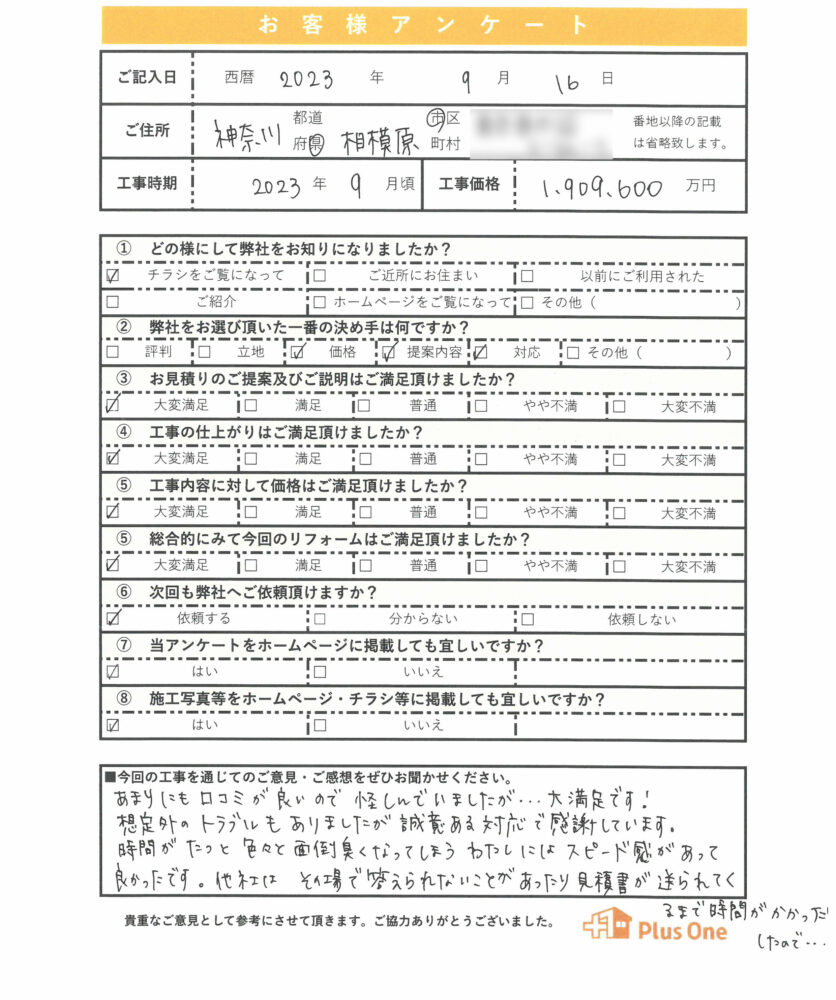 お客様アンケート
ご記入日 西暦 2023 年 9 月 16 日
ご住所 神奈川 都道府県 相模原 市区町村 番地以降の記載は省略致します。
工事時期 2023 年 9 月頃 工事価格 1,909,600 万円
① どの様にして弊社をお知りになりましたか？
☑ チラシをご覧になって □ ご近所にお住まい □ 以前にご利用された
□ ご紹介 □ ホームページをご覧になって □ その他（ ）
② 弊社をお選び頂いた一番の決め手は何ですか？
□ 評判 □ 立地 ☑ 価格 ☑ 提案内容 ☑ 対応 □ その他（ ）
③ お見積りのご提案及びご説明はご満足頂けましたか？
☑ 大変満足 □ 満足 □ 普通 □ やや不満 □ 大変不満
④ 工事の仕上がりはご満足頂けましたか？
☑ 大変満足 □ 満足 □ 普通 □ やや不満 □ 大変不満
⑤ 工事内容に対して価格はご満足頂けましたか？
☑ 大変満足 □ 満足 □ 普通 □ やや不満 □ 大変不満
⑤ 総合的にみて今回のリフォームはご満足頂けましたか？
☑ 大変満足 □ 満足 □ 普通 □ やや不満 □ 大変不満
⑥ 次回も弊社へご依頼頂けますか？
☑ 依頼する □ 分からない □ 依頼しない
⑦ 当アンケートをホームページに掲載しても宜しいですか？
☑ はい □ いいえ
⑧ 施工写真等をホームページ・チラシ等に掲載しても宜しいですか？
☑ はい □ いいえ
■今回の工事を通じてのご意見・ご感想をぜひお聞かせください。
あまりにも口コミが良いので怪しんでいましたが…大満足です！
想定外のトラブルもありましたが誠意ある対応で感謝しています。
時間がたつと色々と面倒臭くなってしまうわたしにはスピード感があって
良かったです。他社は その場で答えられないことがあったり見積書が送られてく
るまで時間がかかっだ
したので…
貴重なご意見として参考にさせて頂きます。ご協力ありがとうございました。
Plus One